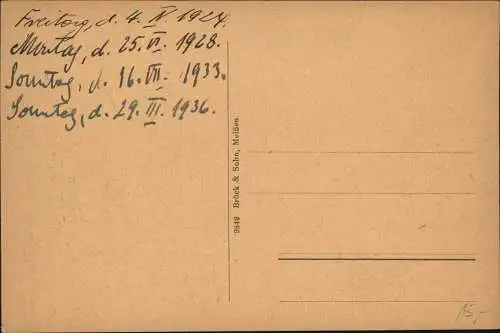 Freitag, d. 4. IV. 1924.
Montag, d. 25. VI. 1928.
Sonntag, d. 16. VII. 1933.
Sonntag, d. 29. III. 1936.
9849 Brück & Sohn, Meißen.
15,-